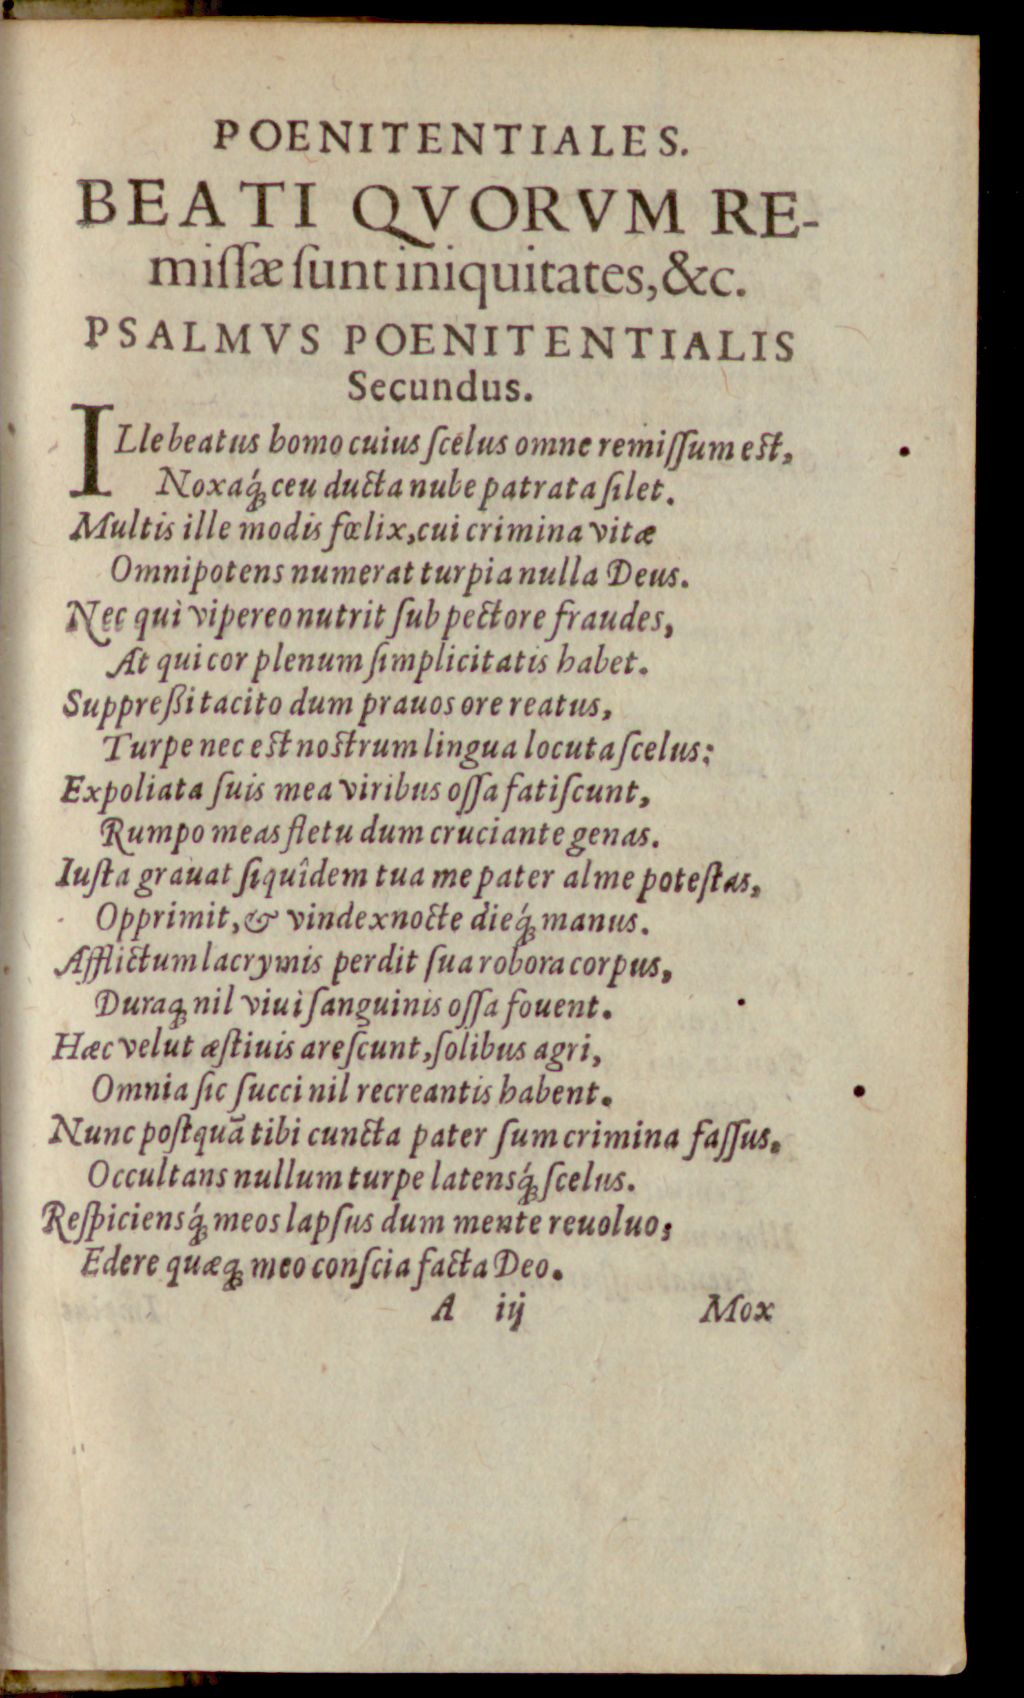 POENITENTIALES.
BEATI QVORVM RE-
miſſæ ſunt iniquitates, &c.
PSALMVS POENITENTIALIS
Secundus.
ILle beatus homo cuius ſcelus omne remiſſum est,
Noxaq́ꝫ ceu ducta nube patrata ſilet.
Multis ille modis fœlix, cui crimina vitæ
Omnipotens numerat turpia nulla Deus.
Nec qui vipereo nutrit ſub pectore fraudes,
At qui cor plenum ſimplicitatis habet.
Suppreßi tacito dum prauos ore reatus,
Turpe nec est nostrum lingua locuta ſcelus:
Expoliata ſuis mea viribus oſſa fatiſcunt,
Rumpo meas fletu dum cruciante genas.
Iuſta grauat ſiquîdem tua me pater alme poteſtas,
Opprimit, & vindex nocte dieq́ꝫ manus.
Afflictum lacrymis perdit ſua robora corpus,
Duraqꝫ nil viui ſanguinis oſſa fouent.
Hæc velut æſtiuis areſcunt, ſolibus agri,
Omnia ſic ſucci nil recreantis habent.
Nunc poſtquã tibi cuncta pater ſum crimina faſſus.
Occultans nullum turpe latensq́ꝫ ſcelus.
Reſpiciensq́ꝫ meos lapſus dum mente reuoluo;
Edere quæqꝫ meo conſcia facta Deo.
A iij Mox